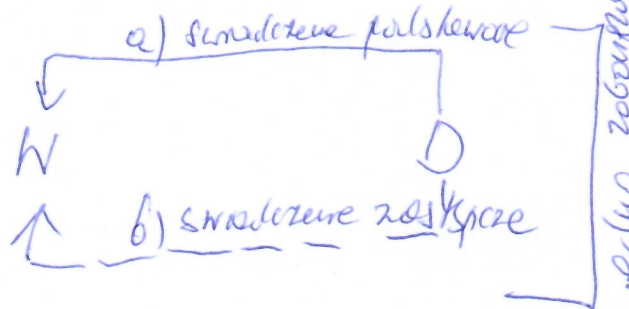 a) świadczenie podstawowe
W
D
b) świadczenie zastępcze
jedno zobowiąz